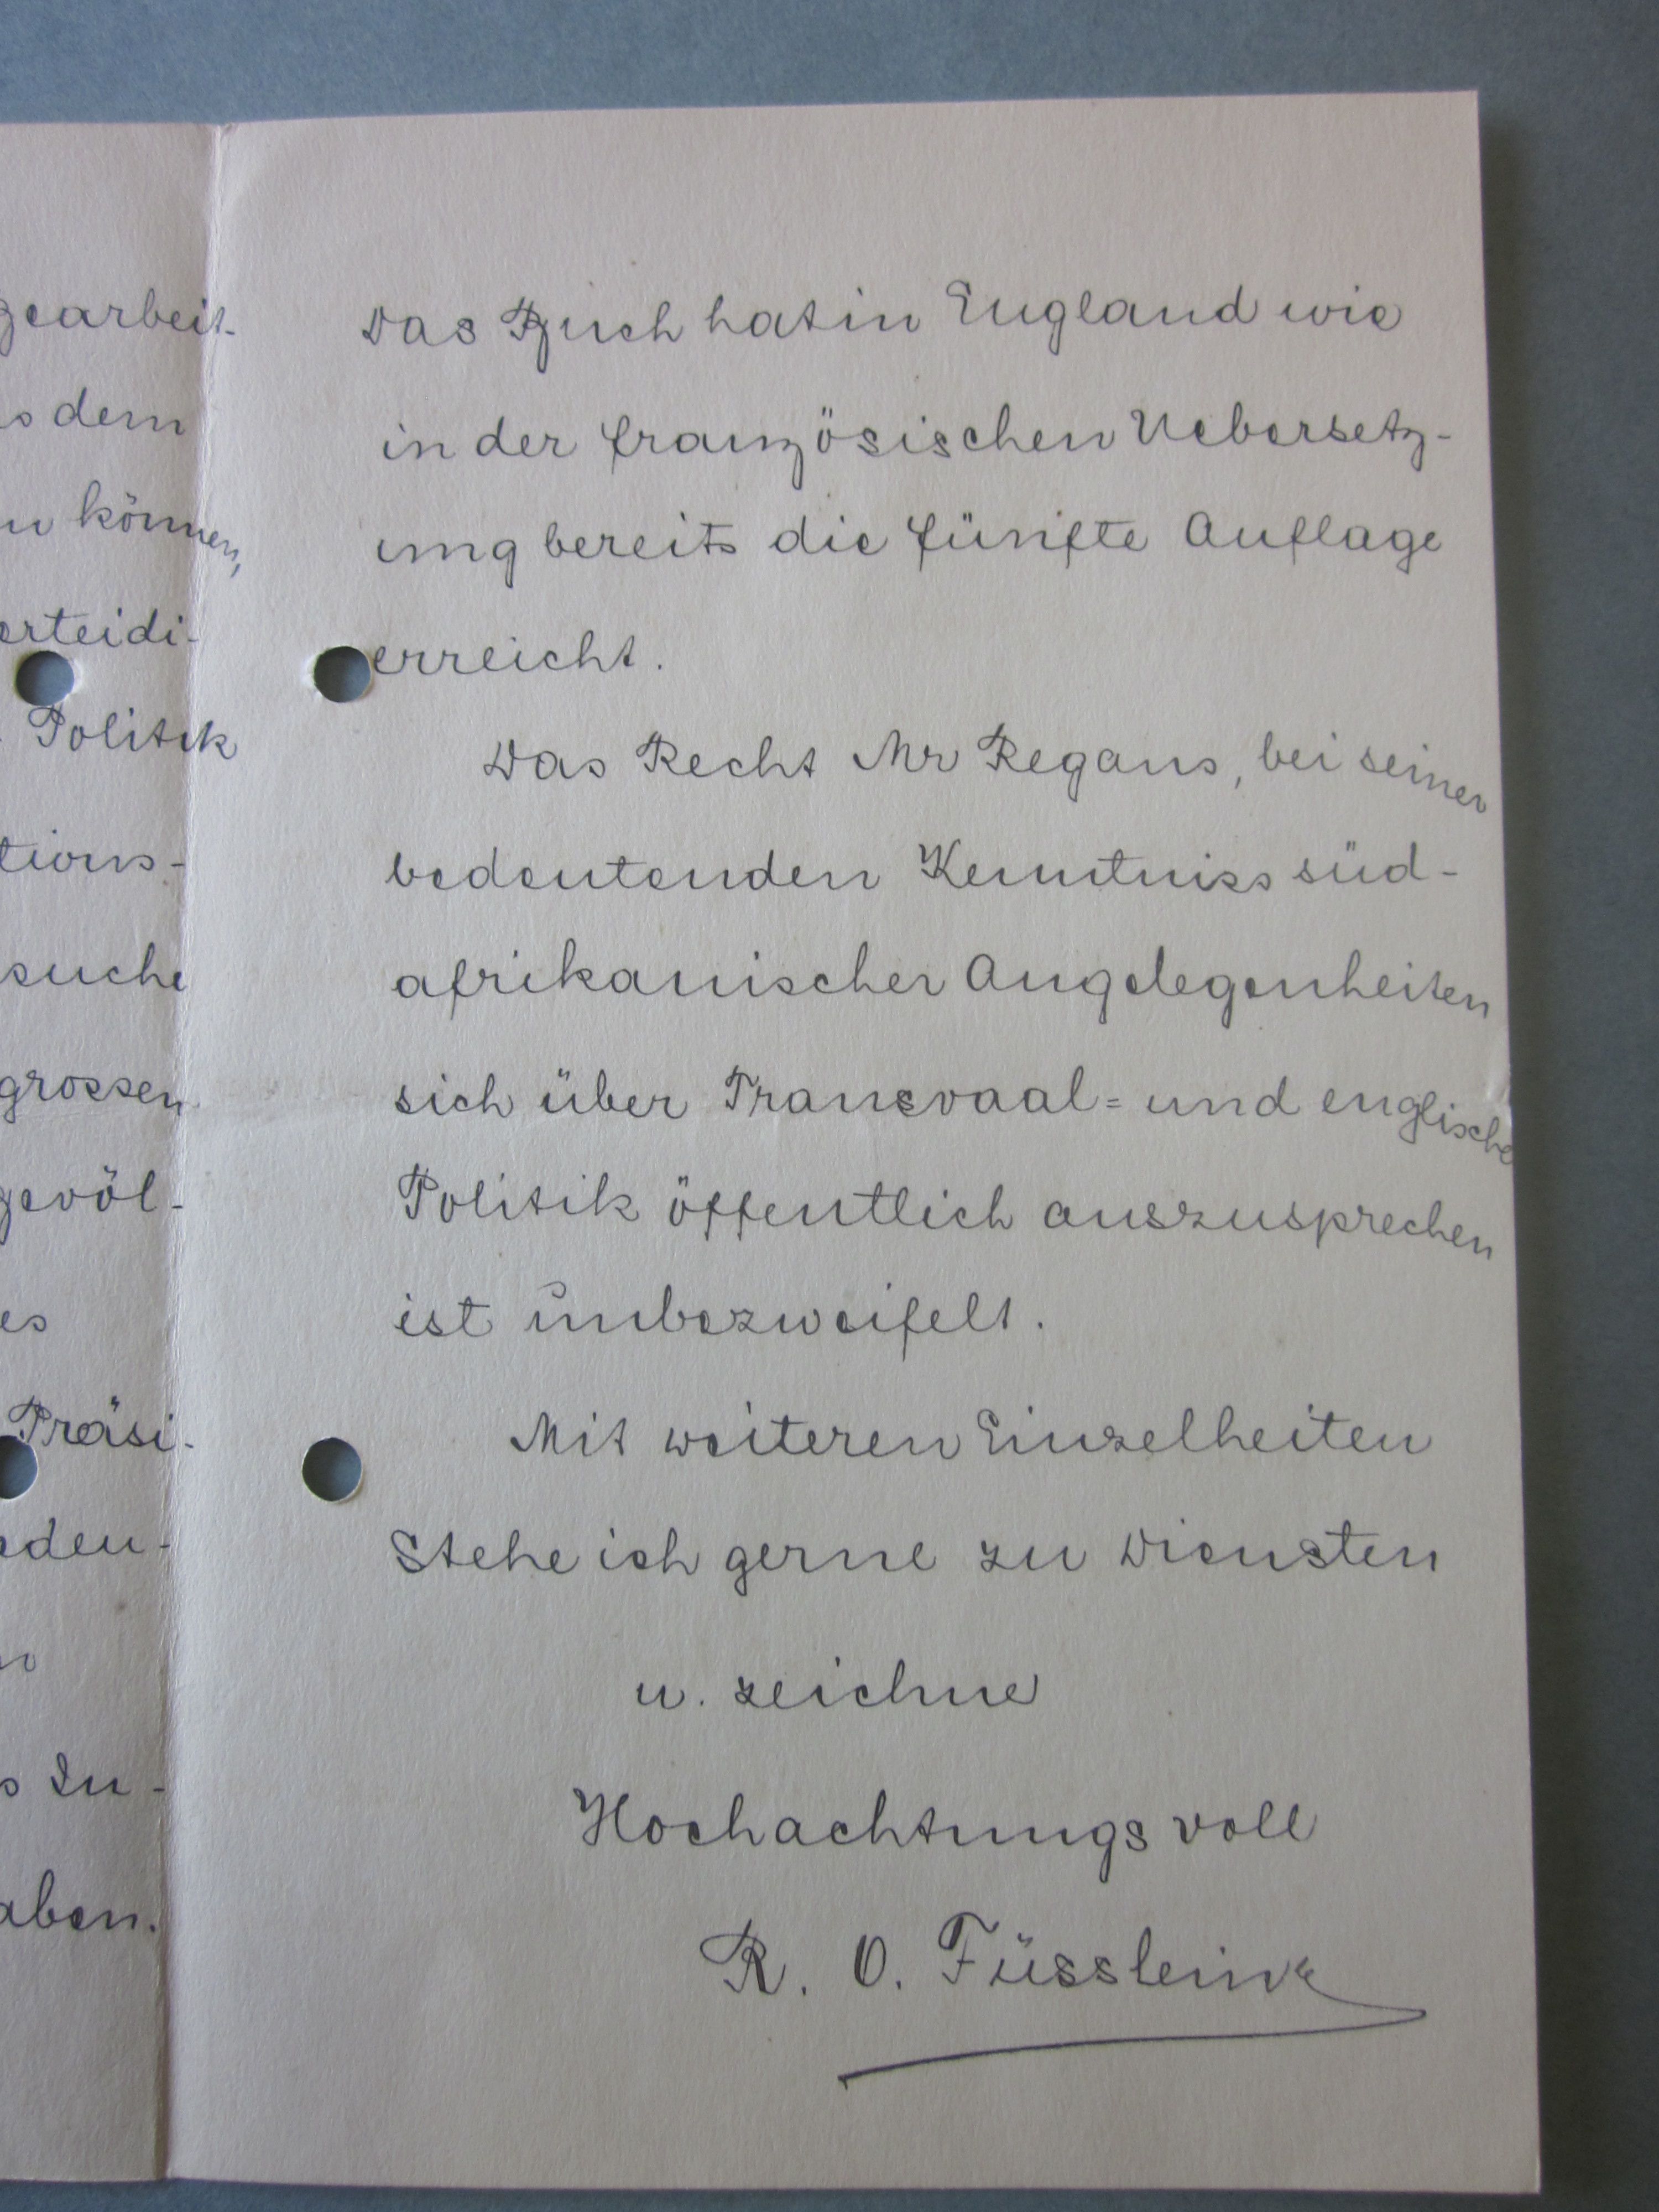 gearbeit-
s dem
n können,
erteidi-
Politik
tions-
suche
grossen
gevöl-
es
Präsi-
eden-
n
s zu-
aben.
Das Buch hat in England wie
in der französischen Uebersetz-
ung bereits die fünfte Auflage
erreicht.
Das Recht Mr Regans, bei seiner
bedeutenden Kenntniss süd-
afrikanischer Angelegenheiten
sich über Transvaal= und englische
Politik öffentlich auszusprechen
ist unbezweifelt.
Mit weiteren Einzelheiten
Stehe ich gerne zu Diensten
u. zeichne
Hochachtungsvoll
R. O. Füsslein